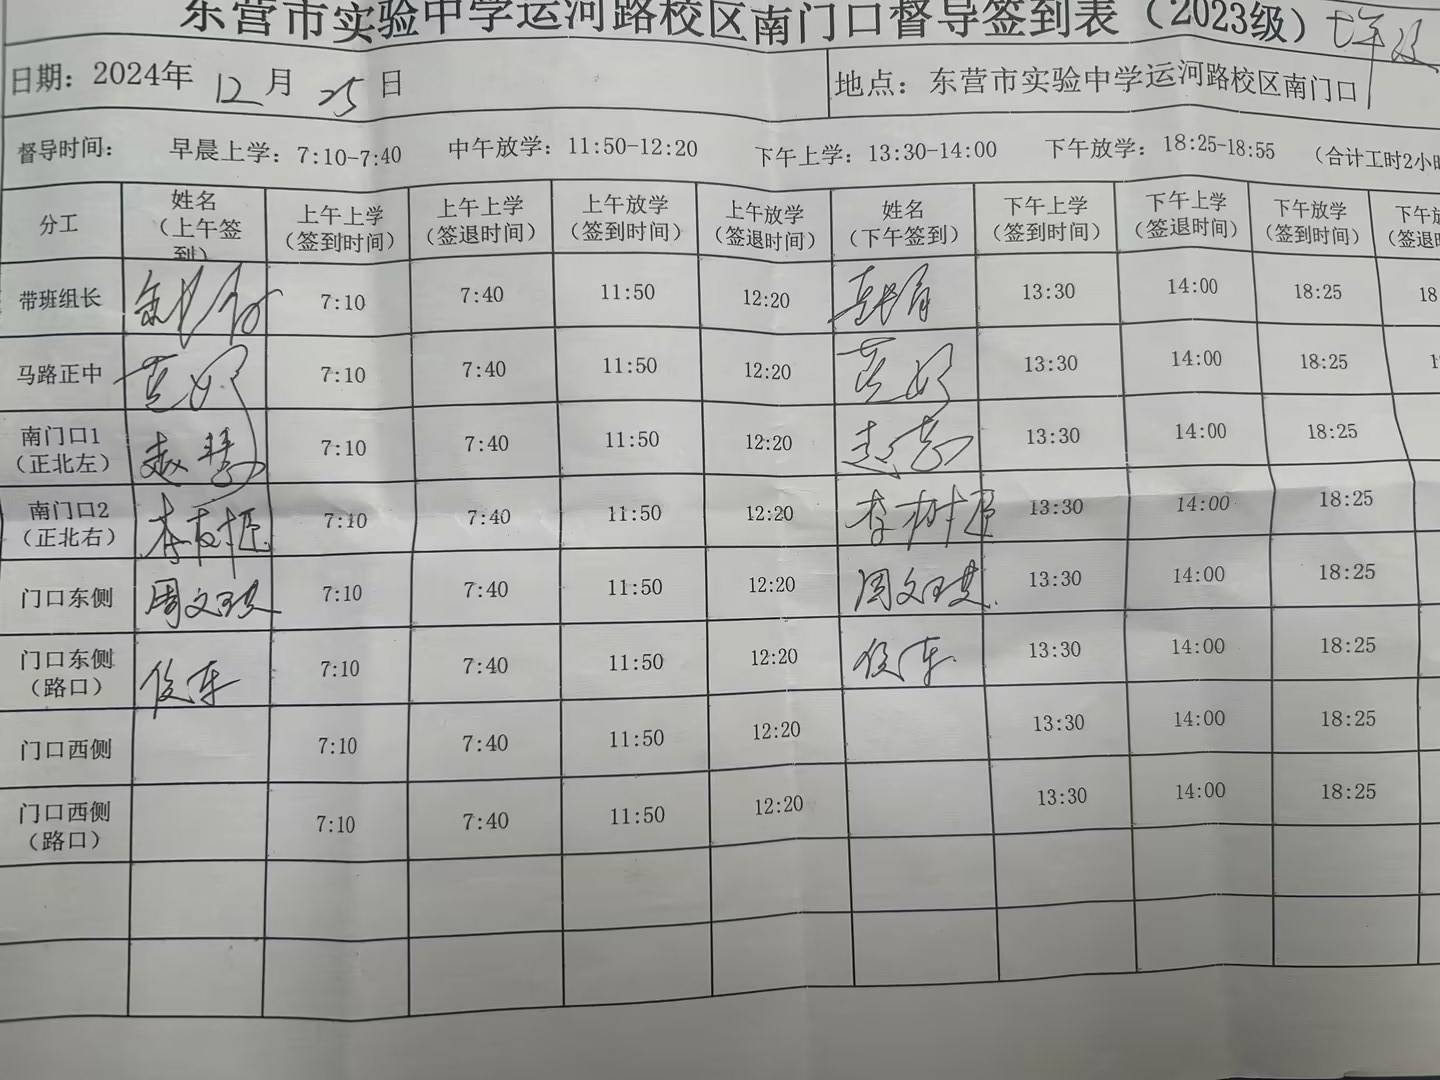 东营市实验中学运河路校区南门口督导签到表（2023级）
日期：2024年 12 月 25 日 地点：东营市实验中学运河路校区南门口
督导时间： 早晨上学：7:10-7:40 中午放学：11:50-12:20 下午上学：13:30-14:00 下午放学：18:25-18:55 （合计工时2小时
分工 姓名（上午签到） 上午上学（签到时间） 上午上学（签退时间） 上午放学（签到时间） 上午放学（签退时间） 姓名（下午签到） 下午上学（签到时间） 下午上学（签退时间） 下午放学（签到时间） 下午放（签退时
带班组长 7:10 7:40 11:50 12:20 13:30 14:00 18:25 18
马路正中 7:10 7:40 11:50 12:20 13:30 14:00 18:25
南门口1（正北左） 赵慧 7:10 7:40 11:50 12:20 13:30 14:00 18:25
南门口2（正北右） 7:10 7:40 11:50 12:20 13:30 14:00 18:25
门口东侧 7:10 7:40 11:50 12:20 13:30 14:00 18:25
门口东侧（路口） 7:10 7:40 11:50 12:20 13:30 14:00 18:25
门口西侧 7:10 7:40 11:50 12:20 13:30 14:00 18:25
门口西侧（路口） 7:10 7:40 11:50 12:20 13:30 14:00 18:25